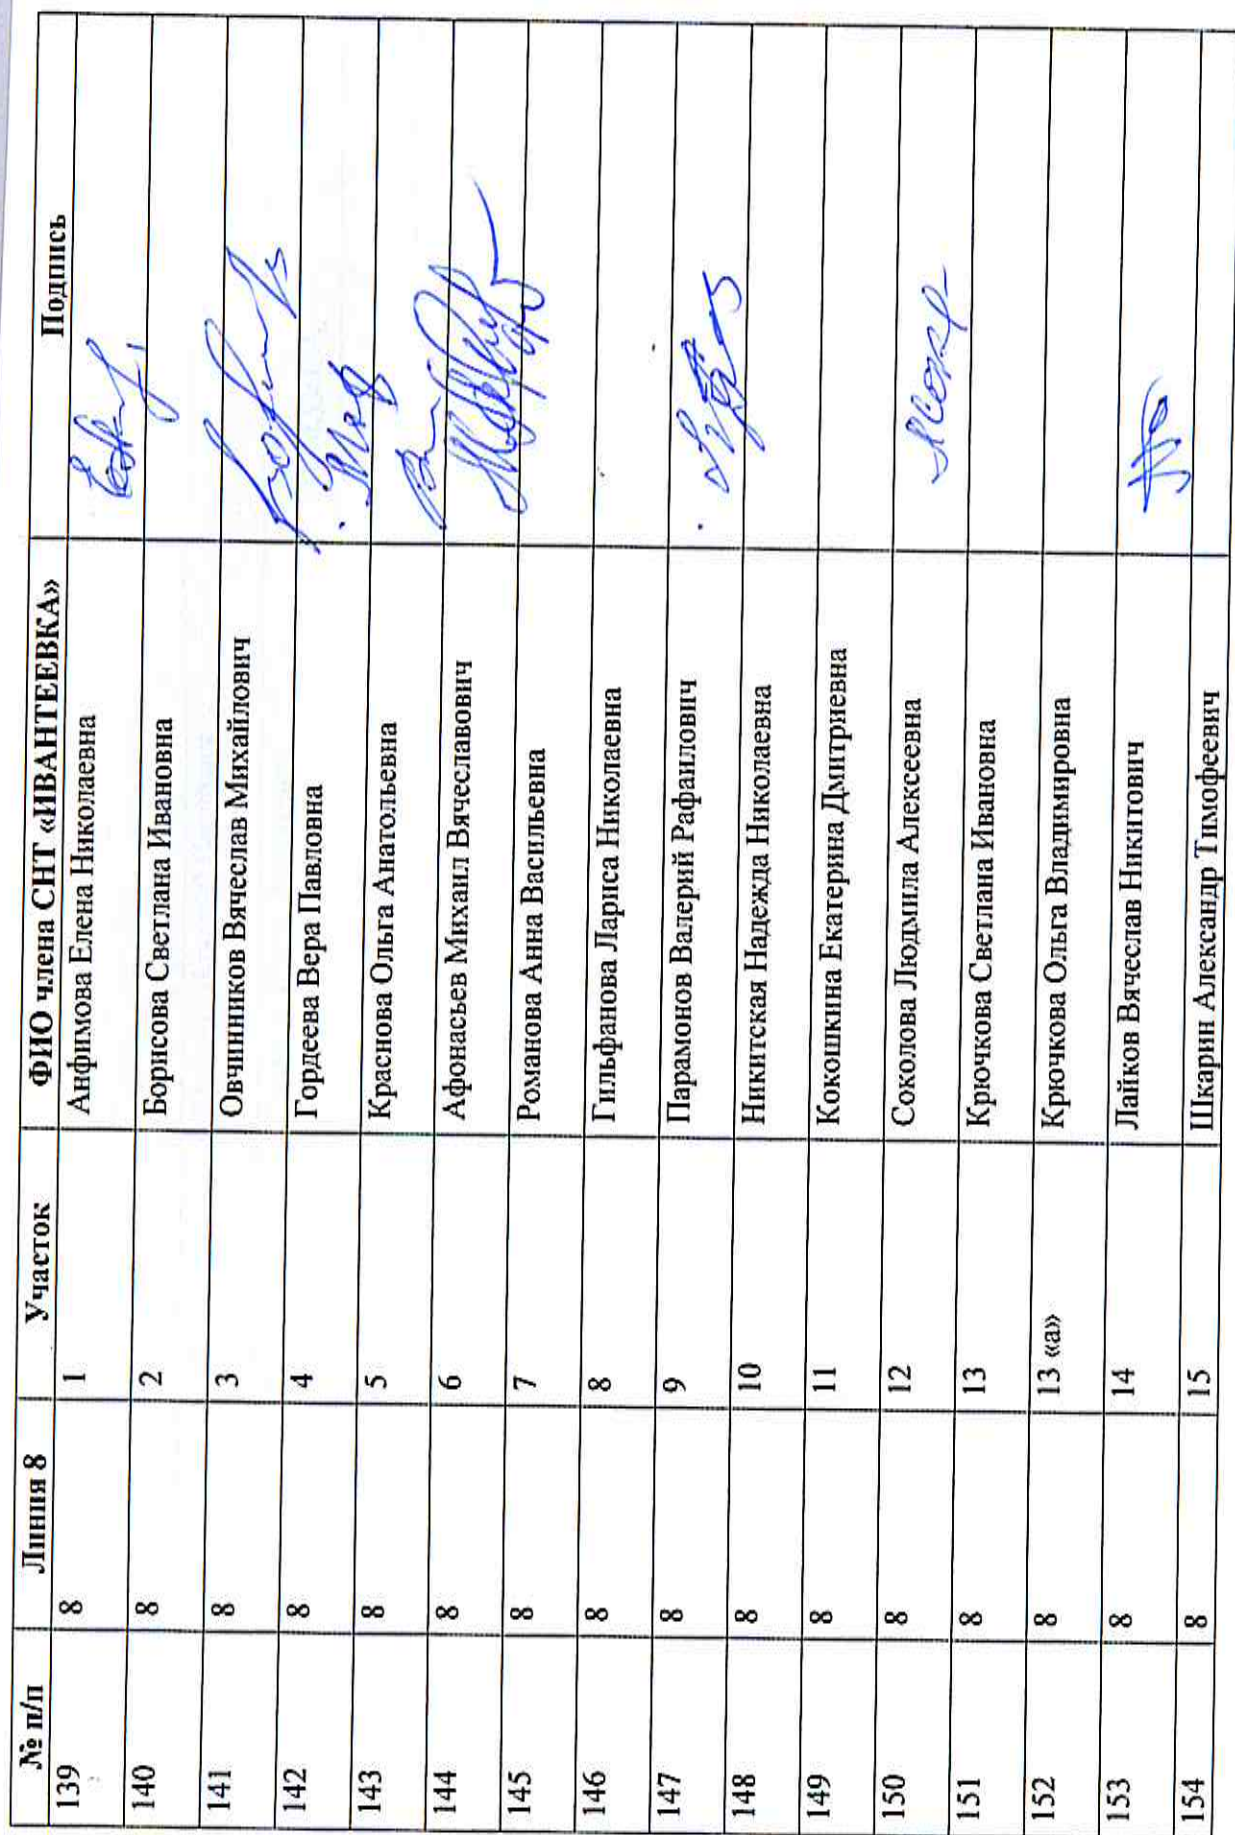 № п/п Линия 8 Участок ФИО члена СНТ «ИВАНТЕЕВКА» Подпись
139 8 1 Анфимова Елена Николаевна
140 8 2 Борисова Светлана Ивановна
141 8 3 Овчинников Вячеслав Михайлович
142 8 4 Гордеева Вера Павловна
143 8 5 Краснова Ольга Анатольевна
144 8 6 Афонасьев Михаил Вячеславович
145 8 7 Романова Анна Васильевна
146 8 8 Гильфанова Лариса Николаевна
147 8 9 Парамонов Валерий Рафаилович
148 8 10 Никитская Надежда Николаевна
149 8 11 Кокошкина Екатерина Дмитриевна
150 8 12 Соколова Людмила Алексеевна
151 8 13 Крючкова Светлана Ивановна
152 8 13 «а» Крючкова Ольга Владимировна
153 8 14 Лайков Вячеслав Никитович
154 8 15 Шкарин Александр Тимофеевич